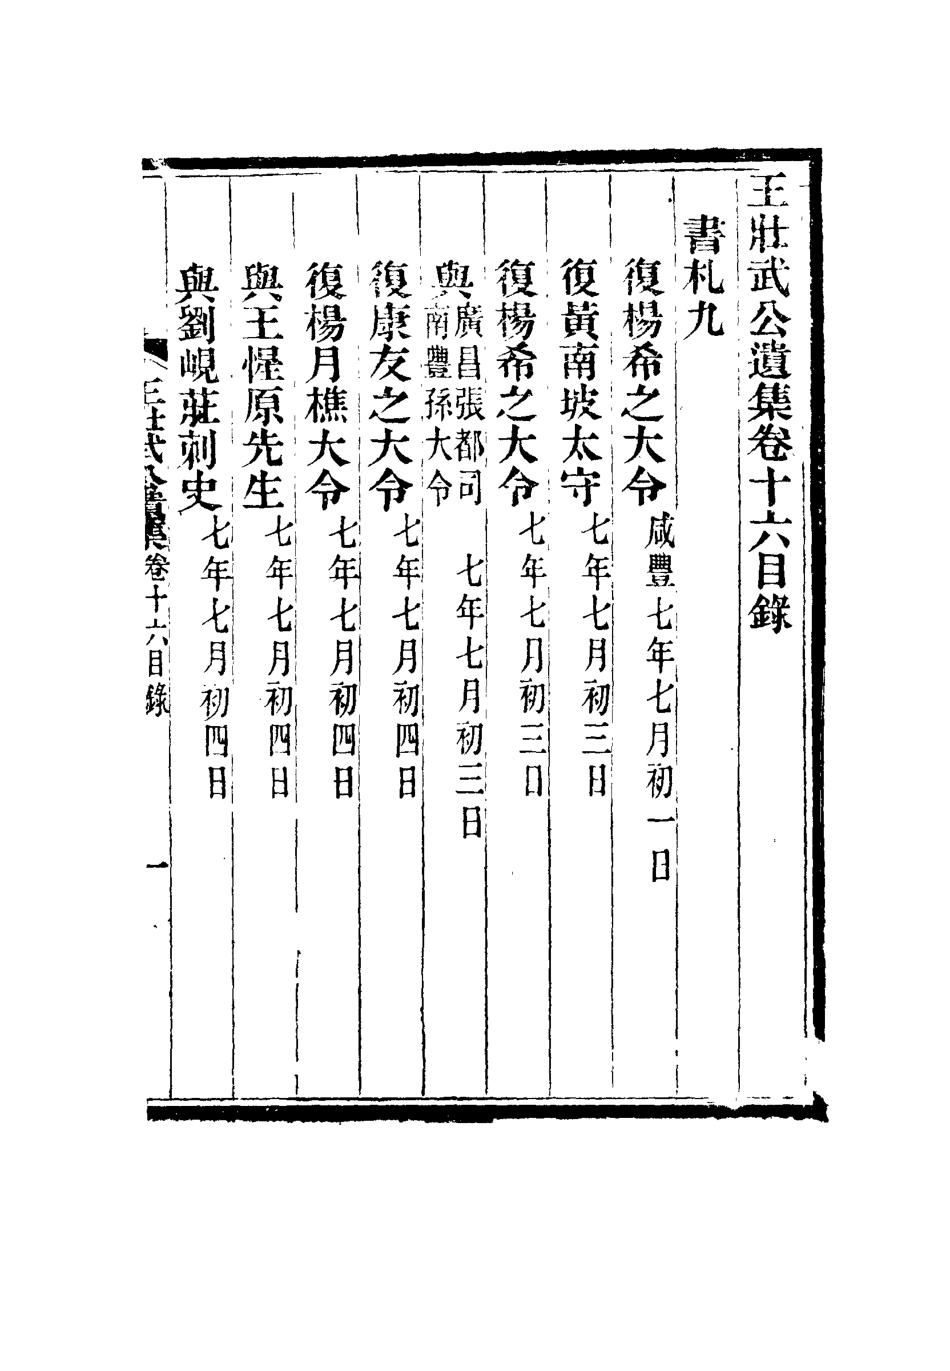 王壯武公遺集卷十六目錄
書札九
復楊希之大令咸豐七年七月初一日
復黃南坡太守七年七月初三日
復楊希之大令七年七月初三日
與廣昌張都司南豐孫大令七年七月初三日
復康友之大令七年七月初四日
復楊月樵大令七年七月初四日
與王惺原先生七年七月初四日
與劉峴莊刺史七年七月初四日
王壯武公遺集卷十六目錄 一